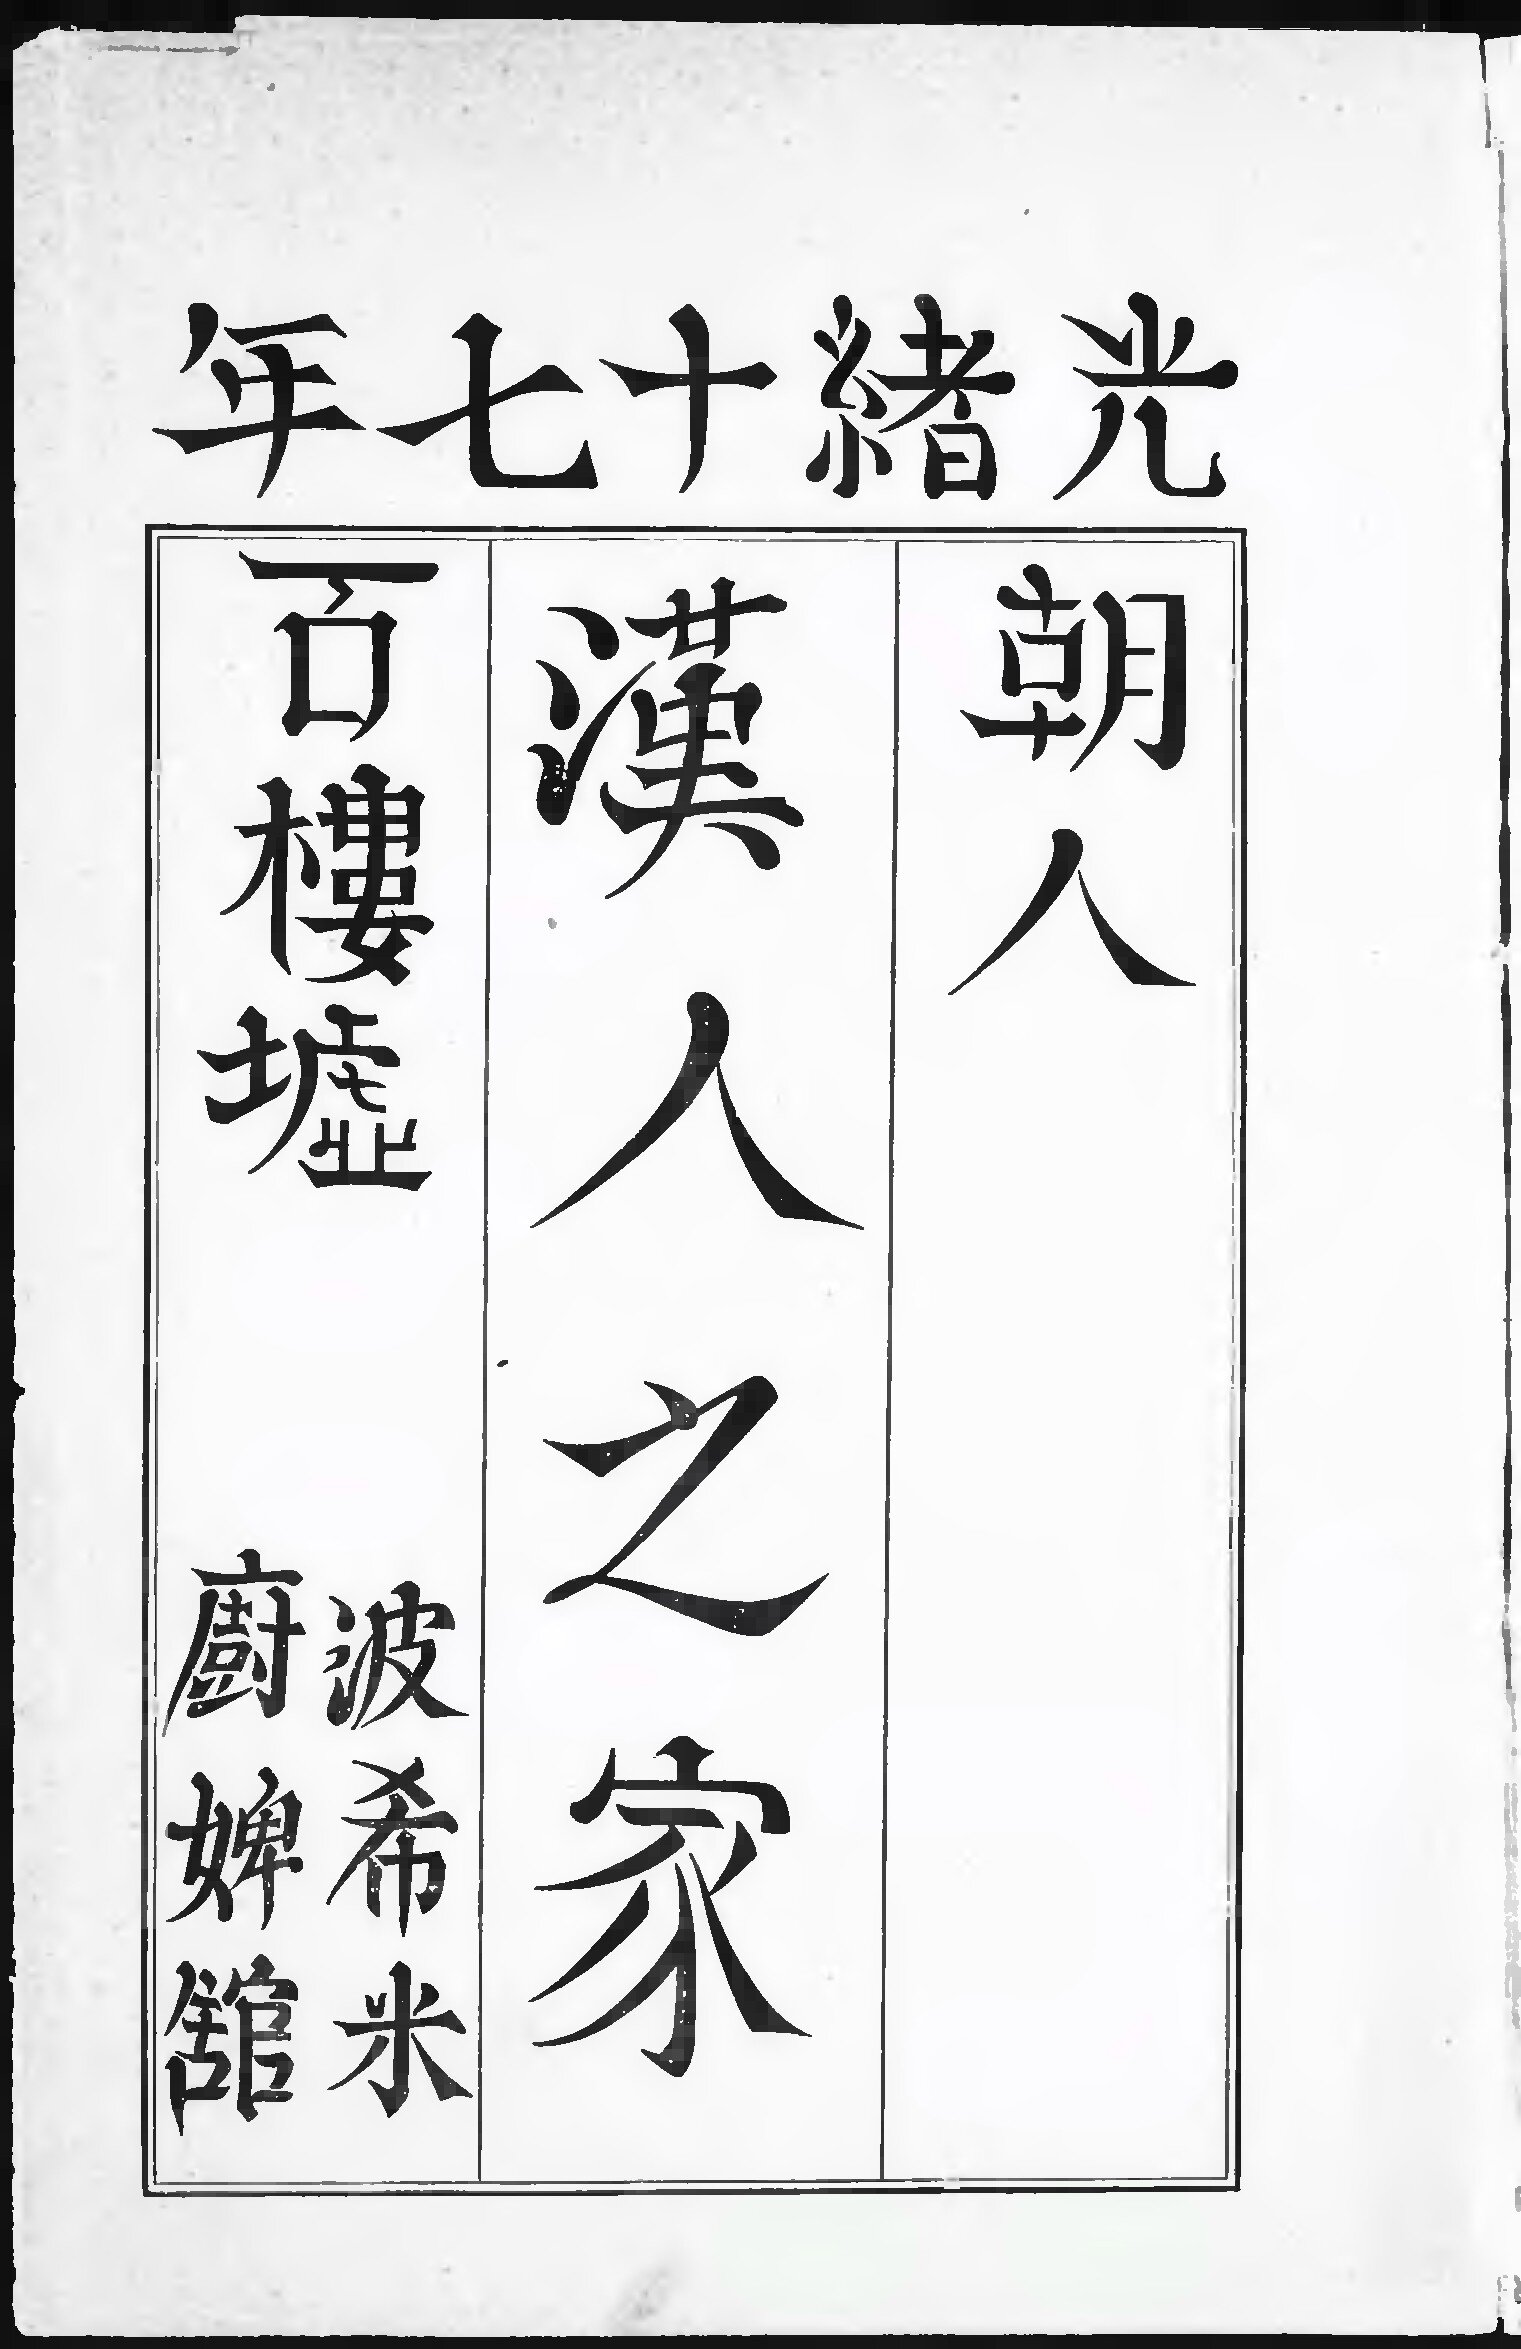 光緒十七年
朝人
漢人之家
百樓墟
波希米
廚婢舘